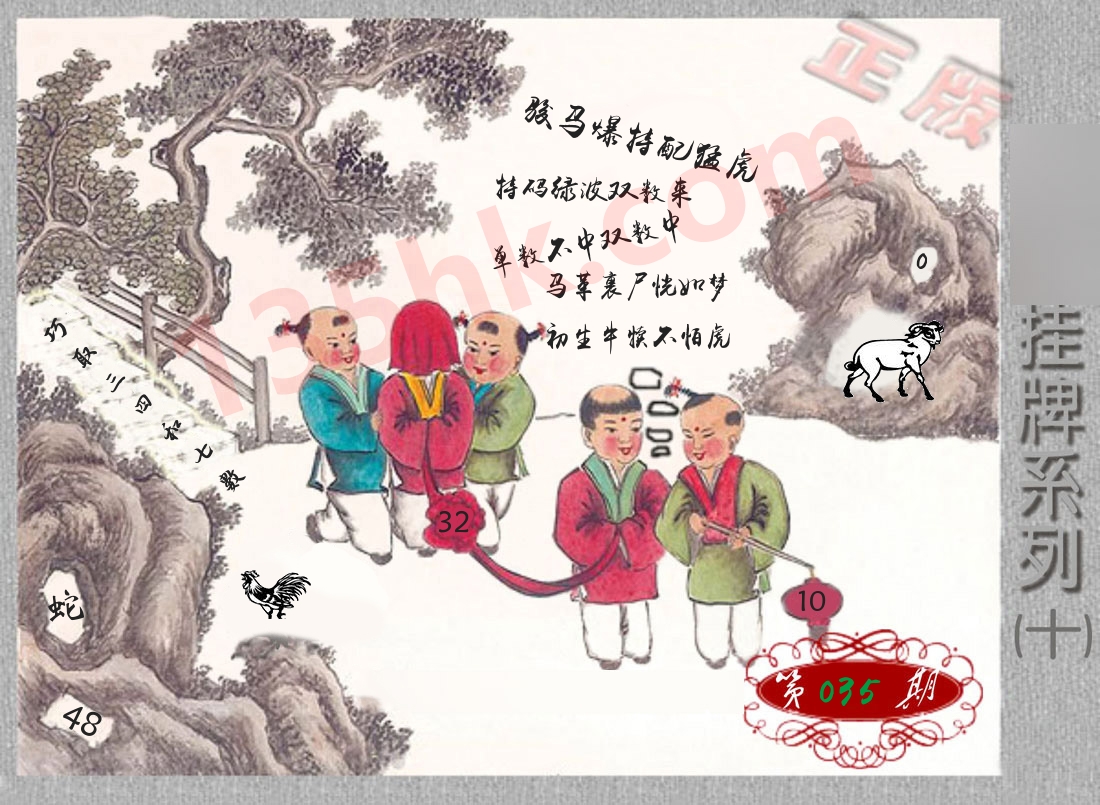 正版
骏马爆特配猛虎
特码绿波双数来
单数不中双数中
马革裹尸恍如梦
初生牛犊不怕虎
135hk.com
0
巧取三四和七数
挂牌系列(十)
32
10
蛇
48
第035期